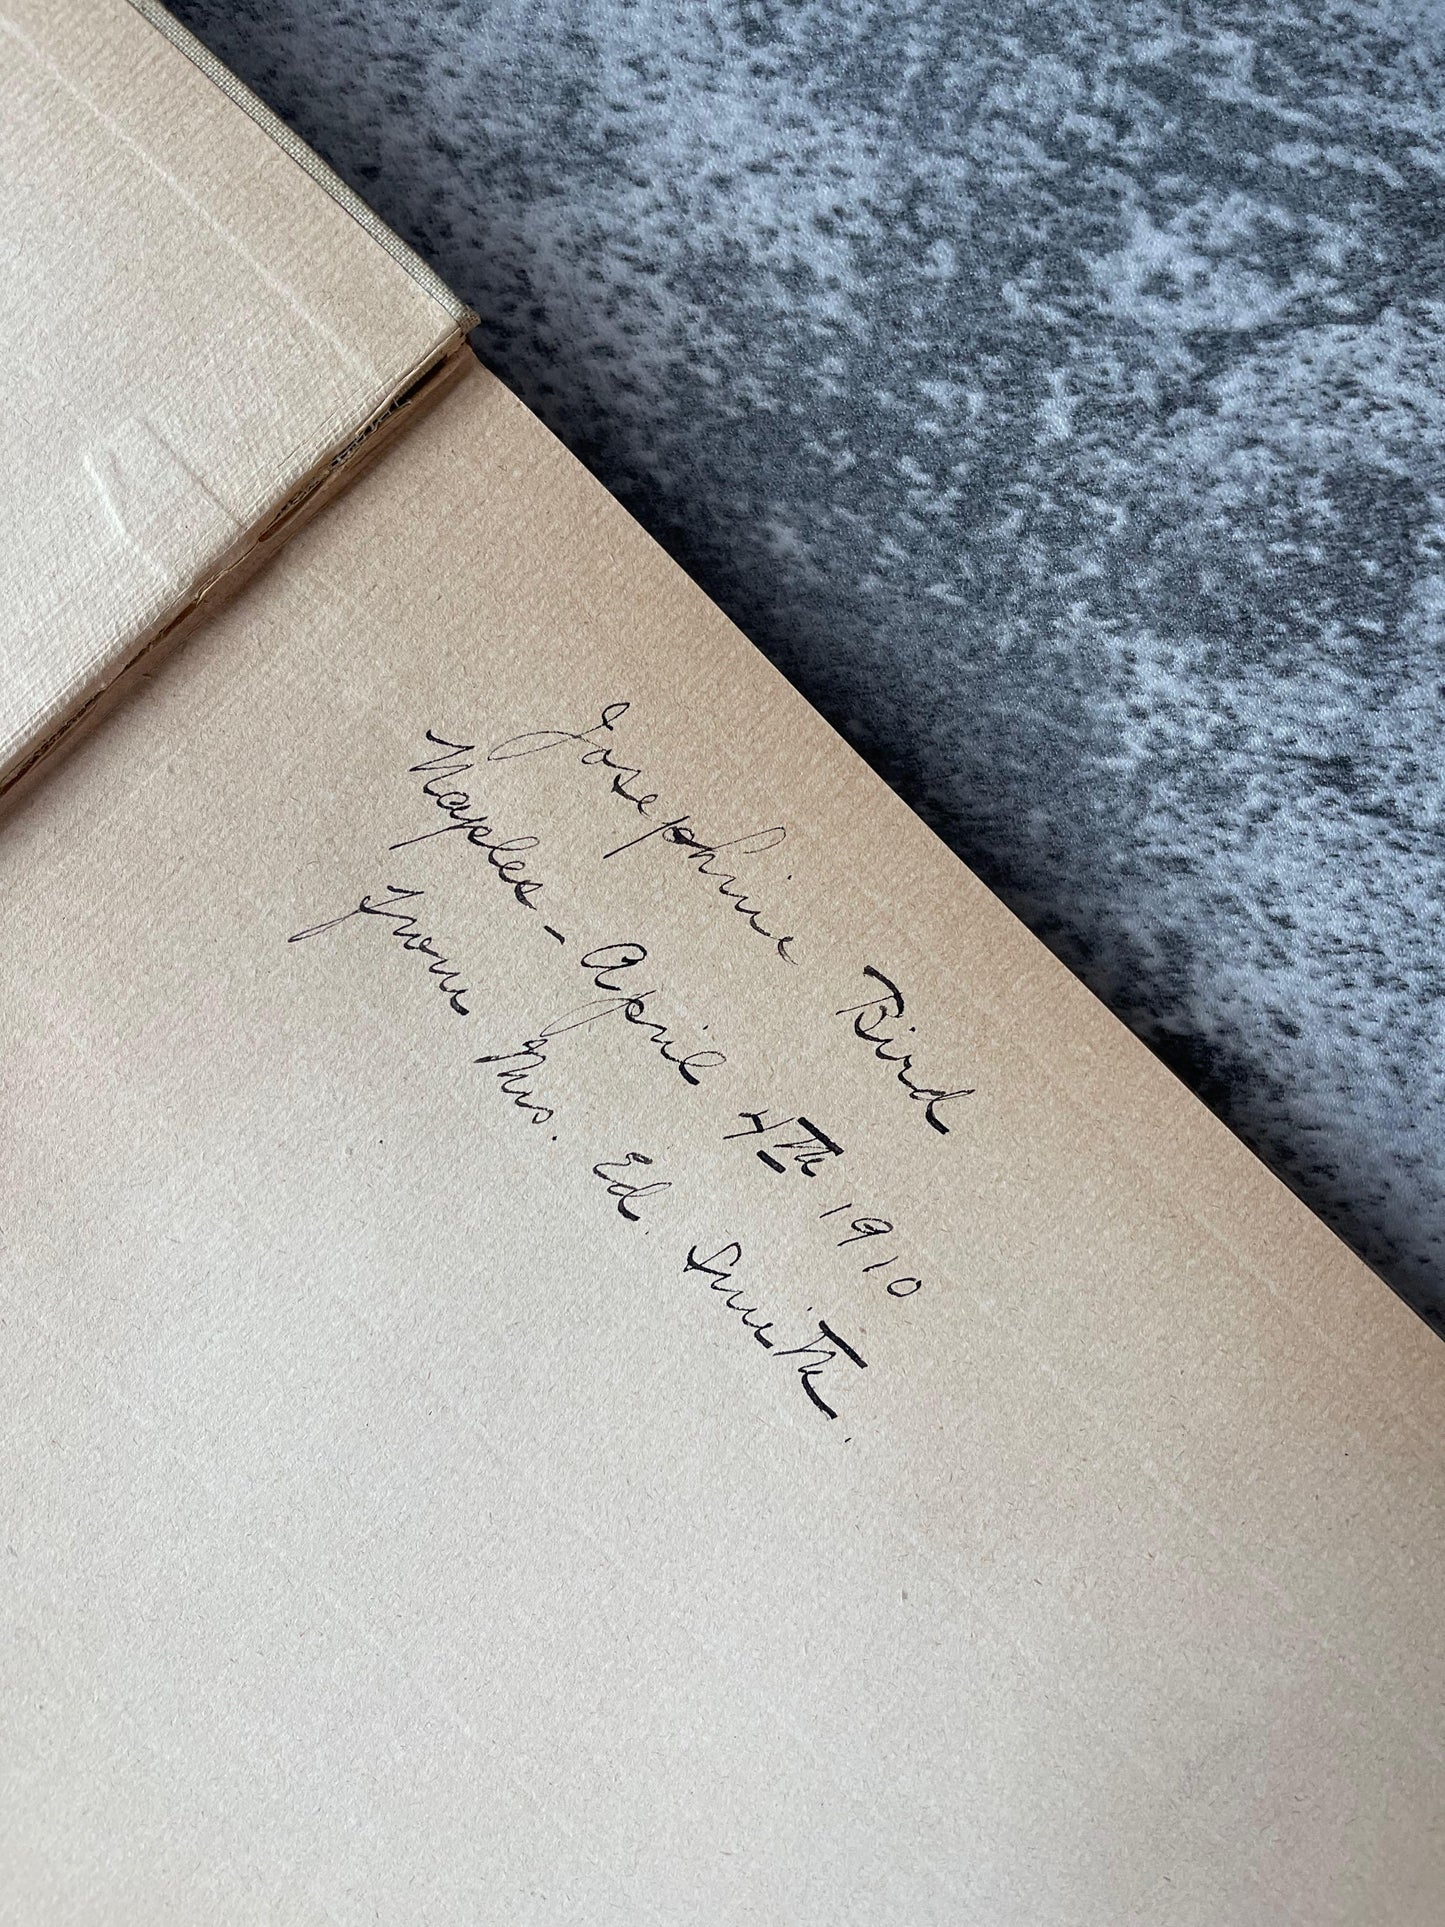 Josephine Bird
Naples - April 4th 1910
from Mrs. Ed. Smith.